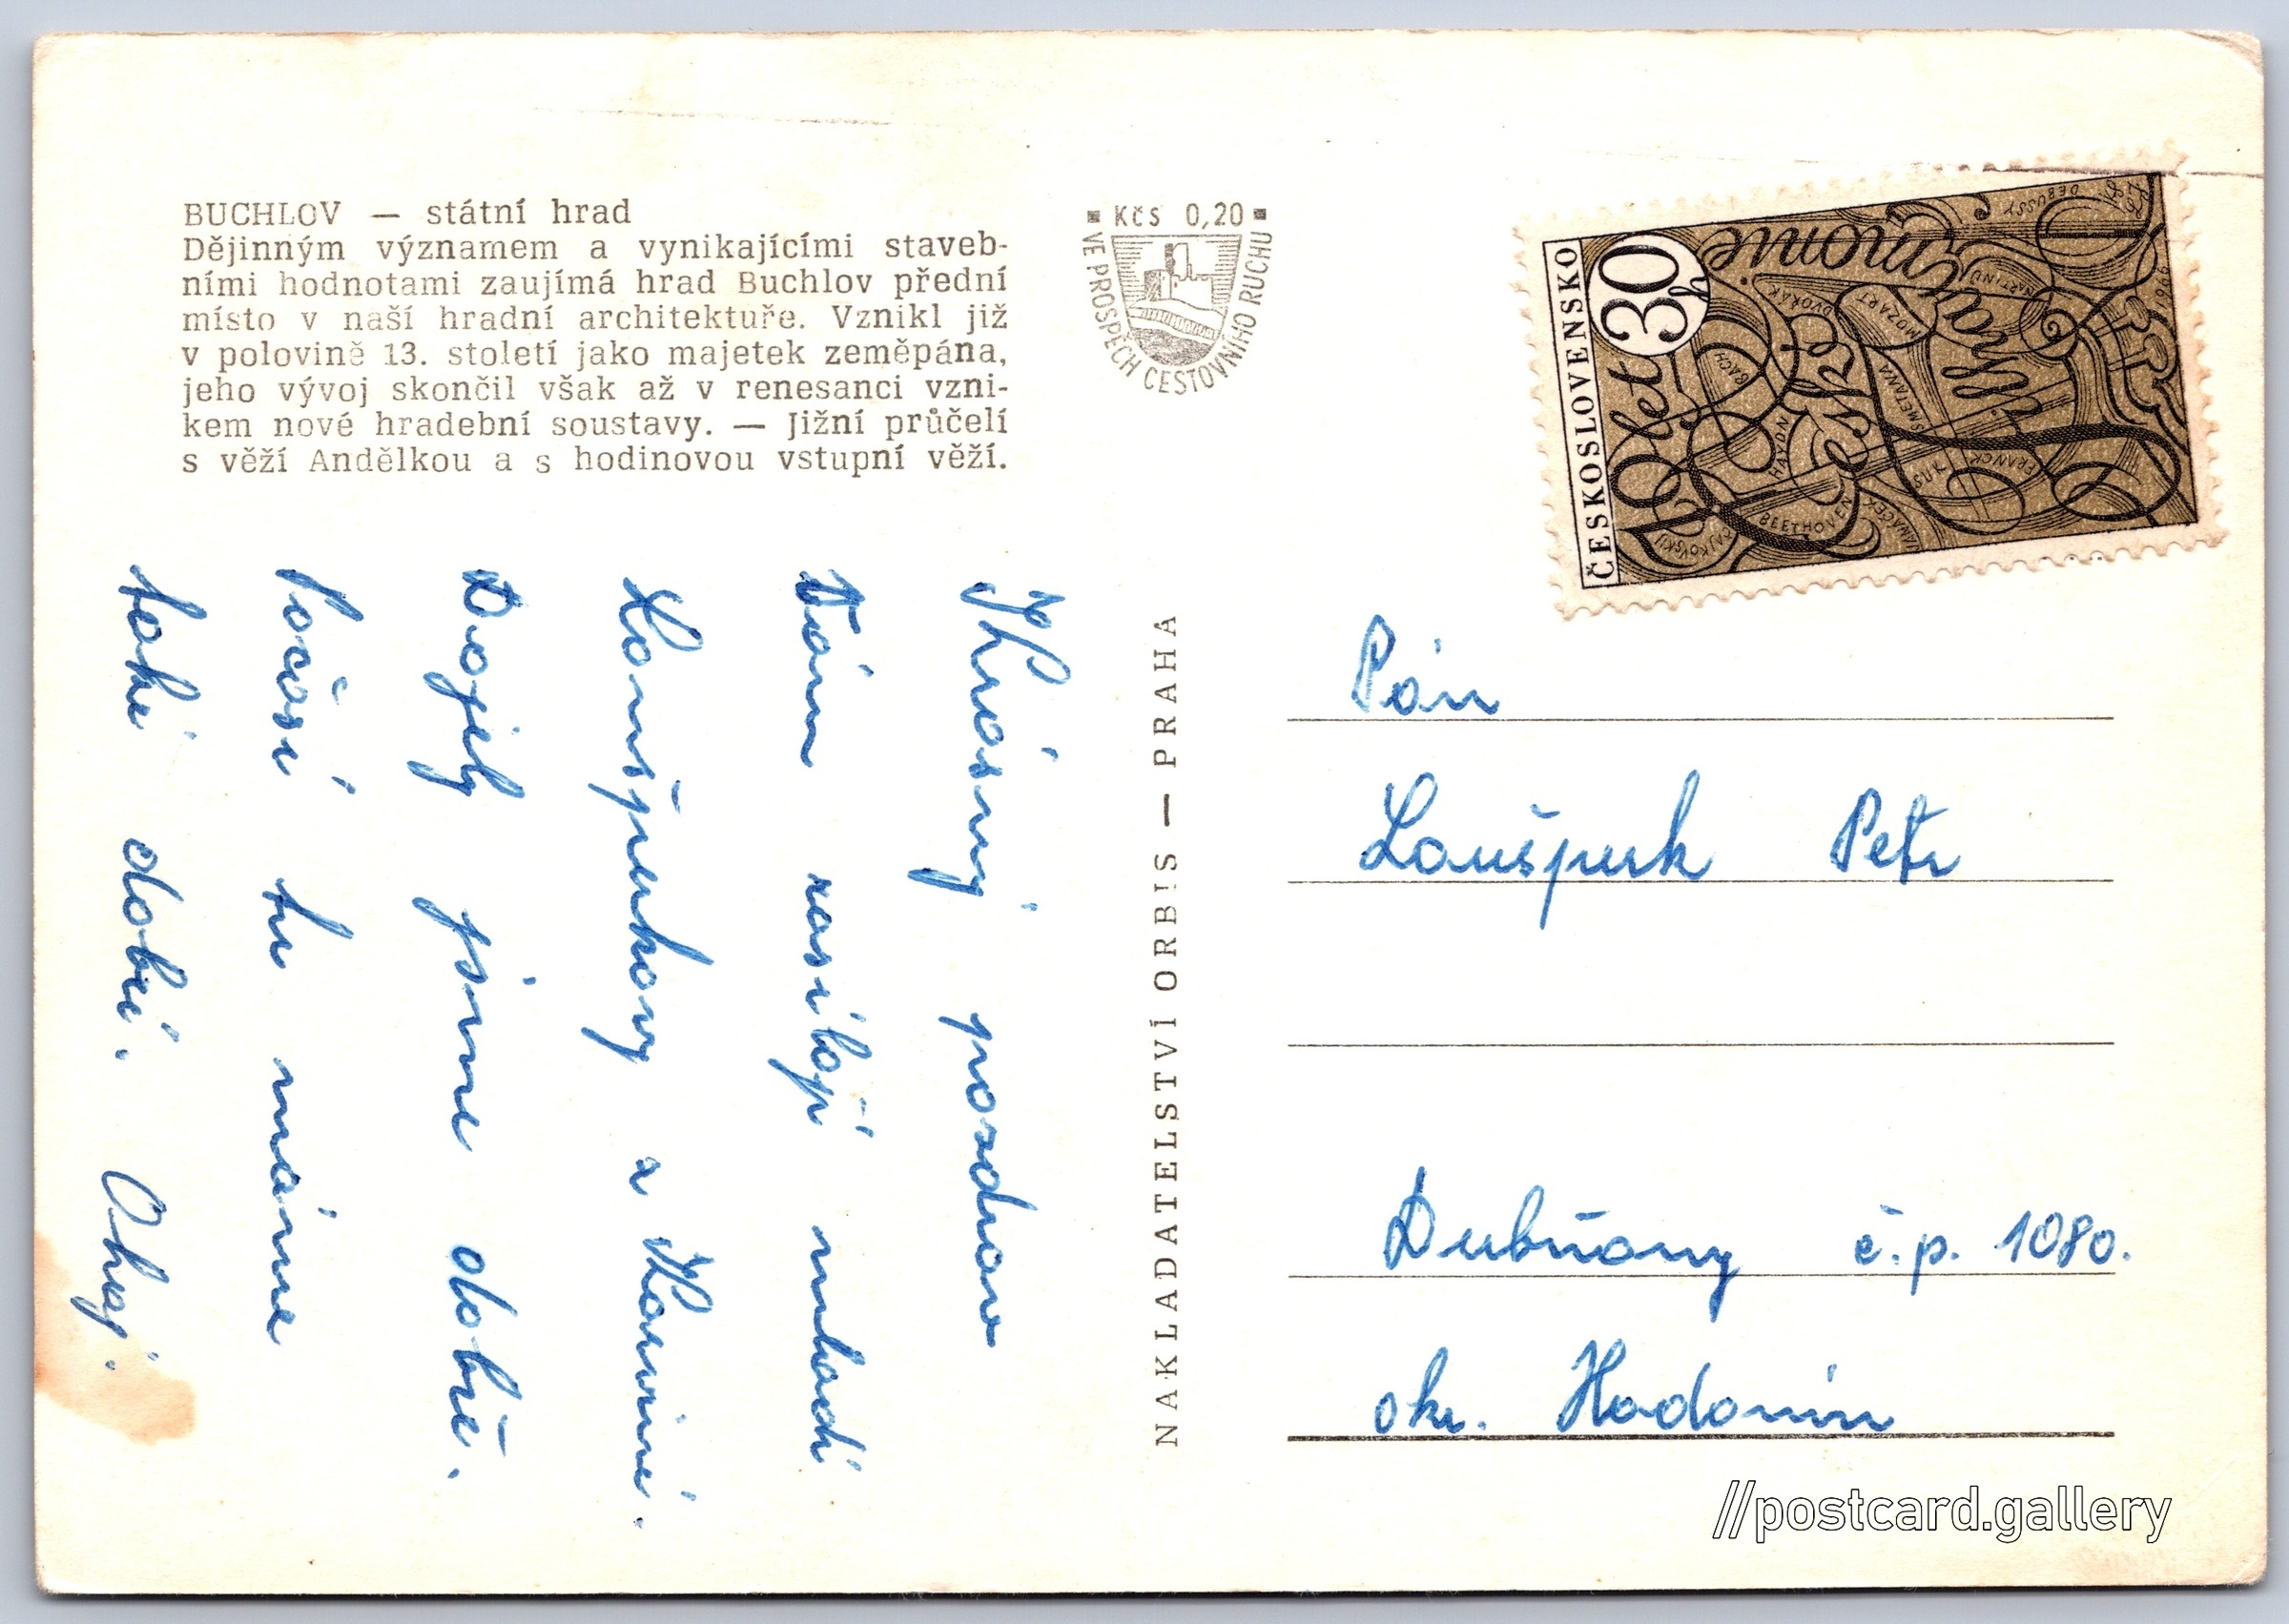 BUCHLOV — státní hrad
Dějinným významem a vynikajícími staveb-
ními hodnotami zaujímá hrad Buchlov přední
místo v naší hradní architektuře. Vznikl již
v polovině 13. století jako majetek zeměpána,
jeho vývoj skončil však až v renesanci vzni-
kem nové hradební soustavy. — Jižní průčelí
s věží Andělkou a s hodinovou vstupní věží.
Kčs 0,20
VE PROSPĚCH CESTOVNÍHO RUCHU
ČESKOSLOVENSKO
30 h
70 let
České
filharmonie
BACH
DVOŘÁK
MOZART
MARTINŮ
DEBUSSY
HAYDN
SMETANA
BEETHOVEN
SUK
FRANCK
JANÁČEK
ČAJKOVSKIJ
1966
Krásný pozdrav
Vám zasílají mladí
Laušpurkovy a
Dojely jsme dobře.
Počasí tu máme
také dobré. Ahoj.
NAKLADATELSTVÍ ORBIS — PRAHA
Pán
Laušpurk Petr
Dubňany č.p. 1080.
okr. Hodonín
//postcard.gallery